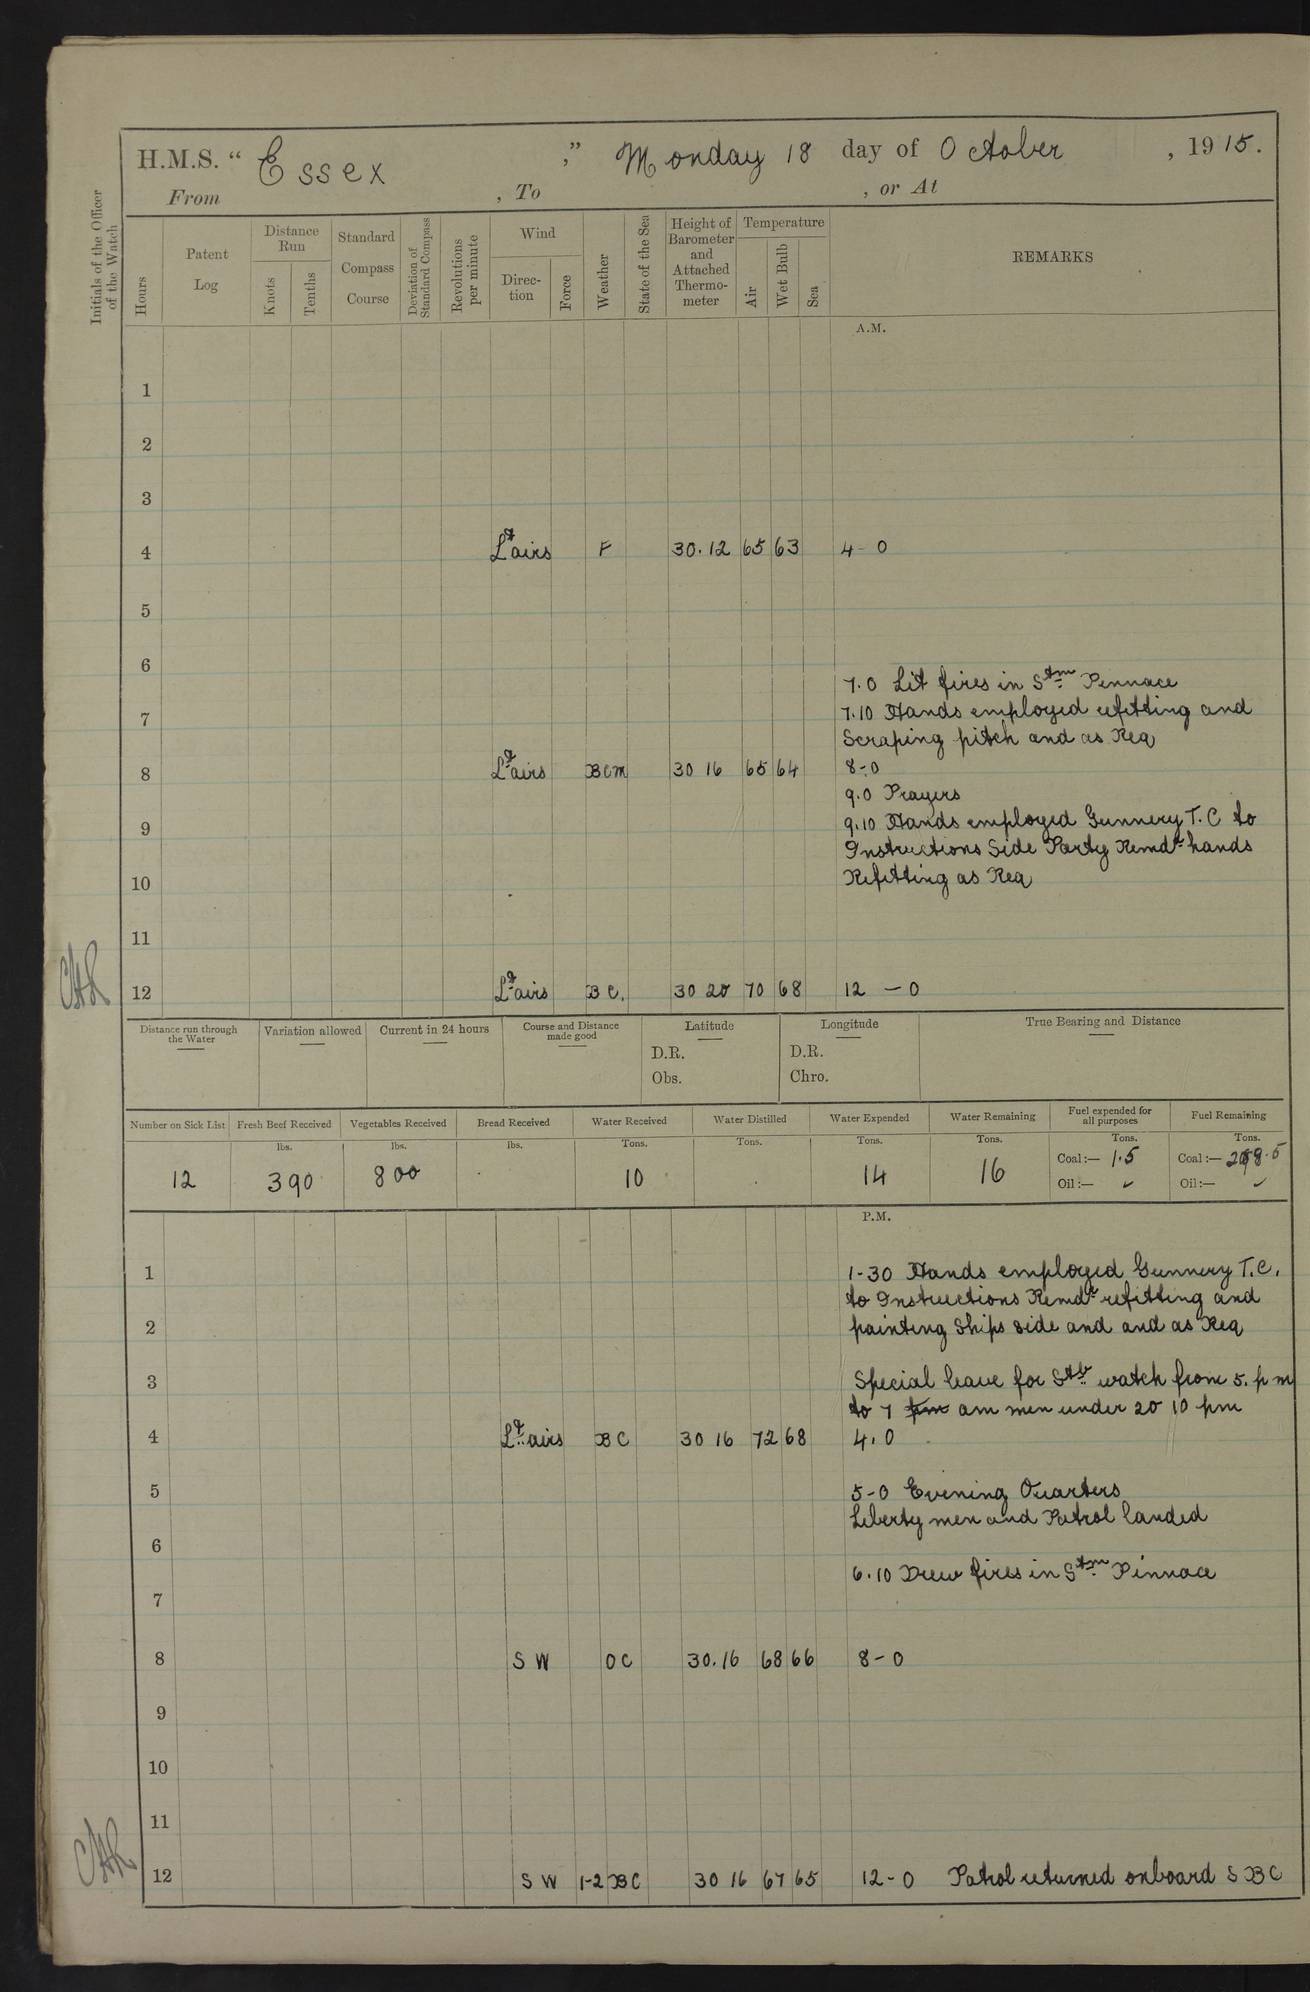 H.M.S. “ Essex ,” Monday 18 day of October , 1915.
From , To , or At
Initials of the Officer of the Watch
Hours
Patent Log
Distance Run
Knots
Tenths
Standard Compass Course
Deviation of Standard Compass
Revolutions per minute
Wind
Direction
Force
Weather
State of the Sea
Height of Barometer and Attached Thermometer
Temperature
Air
Wet Bulb
Sea
REMARKS
A.M.
1
2
3
4 Lt airs F 30.12 65 63 4-0
5
6
7.0 Lit fires in Stm Pennace
7
7.10 Hands employed refitting and
Scraping pitch and as Req
8 Lt airs BCM 30 16 65 64 8-0
9.0 Prayers
9
9.10 Hands employed Gunnery T.C to
Instructions Side Party Remdr hands
10
Refitting as Req
11
12 Lt airs BC. 30 20 70 68 12 - 0
Distance run through the Water
Variation allowed
Current in 24 hours
Course and Distance made good
Latitude
D.R.
Obs.
Longitude
D.R.
Chro.
True Bearing and Distance
Number on Sick List
12
Fresh Beef Received
lbs.
390
Vegetables Received
lbs.
800
Bread Received
lbs.
Water Received
Tons.
10
Water Distilled
Tons.
Water Expended
Tons.
14
Water Remaining
Tons.
16
Fuel expended for all purposes
Tons.
Coal:— 1.5
Oil:— ✓
Fuel Remaining
Tons.
Coal:—
Oil:— ✓
P.M.
1 1-30 Hands employed Gunnery T.C.
to Instructions Remdr refitting and
2 painting Ships side and and as Req
3 Special leave for Stb watch from 5. p m
to 7 pm am men under 20 10 pm
4 Lt airs BC 30 16 72 68 4.0
5 5-0 Evening Quarters
Liberty men and Patrol landed
6
6.10 Drew fires in Stm Pinnace
7
8 S W OC 30.16 68 66 8-0
9
10
11
12 S W 1-2 BC 30 16 67 65 12-0 Patrol returned onboard S B C